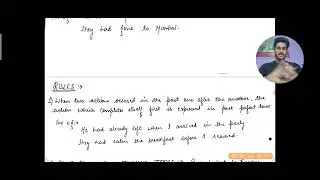 They had gone to Mumbai.
RULES :-
1) When two actions occured in the past one after the another, the
action which completes itself first is expressed in past perfect tense
for eg:-
He had already left when I arrived in the party.
They had eaten the breakfast before I reached.